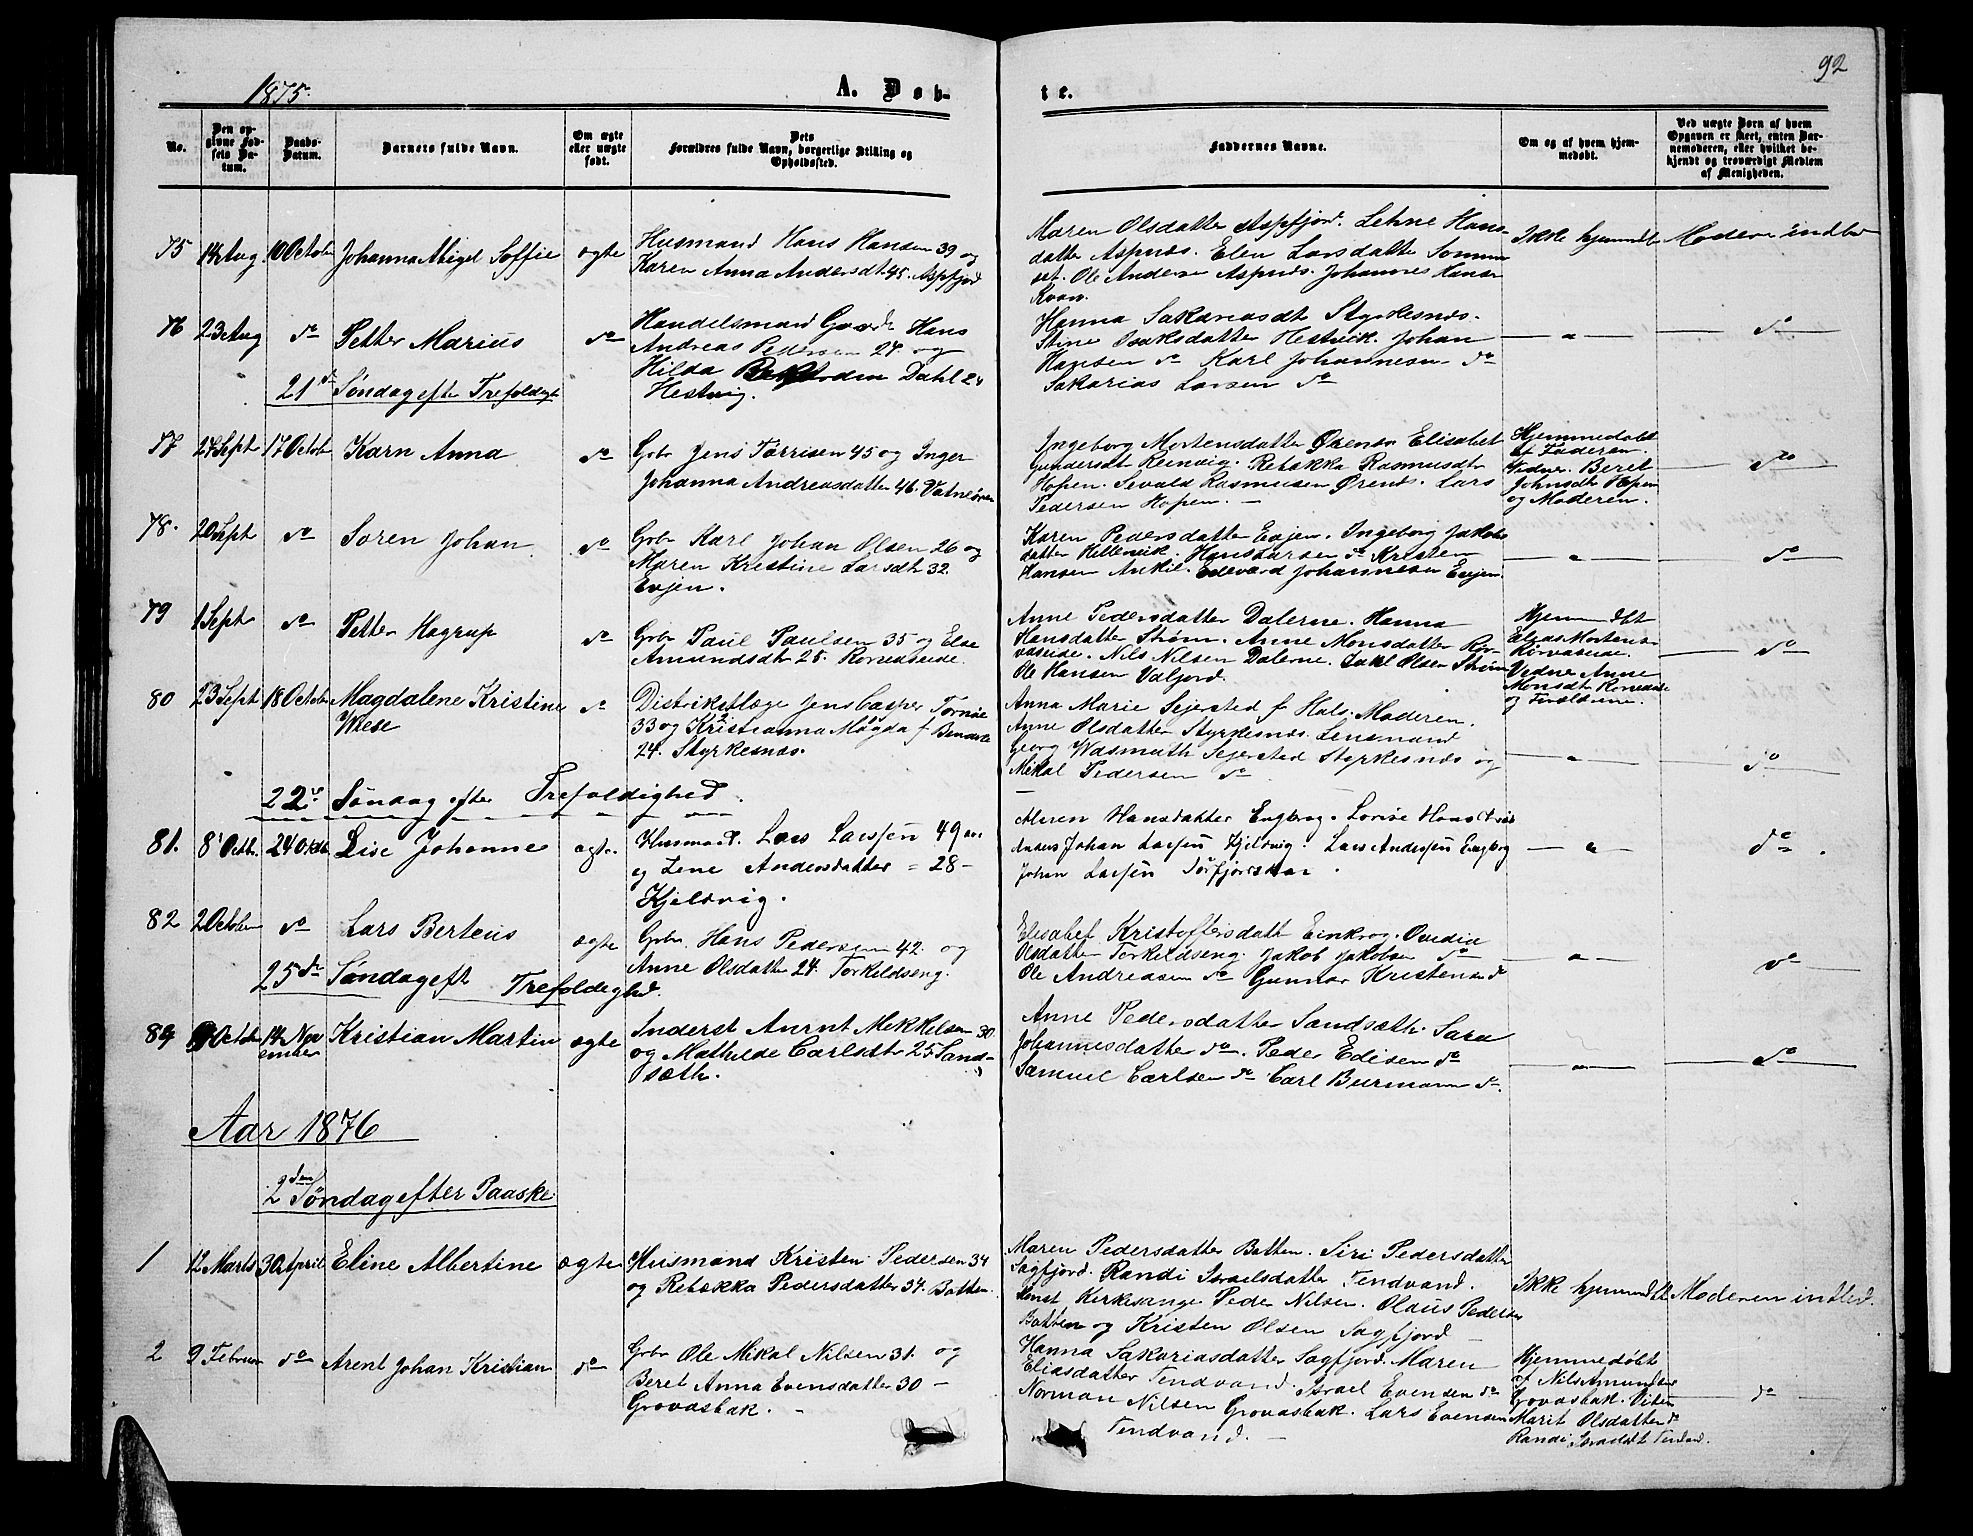 1875.
A. Døb-
te.
92
No.
Den op-
givne Fød-
sels Da-
tum.
Daabs-
Datum.
Barnets fulde Navn.
Om ægte
eller uægte
født.
Dets
Forældres fulde Navn, borgerlige Stilling og
Opholdssted.
Faddernes Navne.
Om og af hvem hjem-
medøbt.
Ved uægte Børn af hvem
Opgaven er skeet, enten Bar-
nemoderen, eller hvilket be-
kjendt og troværdigt Medlem
af Menigheden.
75 14 Aug. 10 October Johanna Abigel Soffie ægte
Husmand Hans Hansen 39 og
Karen Anna Andersdt. 45. Aspfjord
Maren Olsdatter Aspfjord. Lehne Hans-
datter Aspnæs. Elen Larsdatter Sommer
set. Ole Andersen Aspnæs. Johannes Hansen
Kvan.
Ikke hjemmdt Moderen indled
76 23 Aug do Petter Marius do
Handelsmand Hans
Andreas Pedersen 24. og
Hilda Dahl 24
Hestvig.
Hanna Sakariasdt Styrkesnæs.
Stine Isaksdatter Hestvik. Johan
Hansen do Karl Johannesen do
Sakarias Larsen do
— " — do
21de Søndag efter Trefoldigh
77 24 Sept 17 October Karn Anna do
Gbr Jens Tørrisen 45 og Inger
Johanna Andreasdatter 46. Vatneøren
Ingeborg Mortensdatter Ørenes Elisabet
Gundersdt Reinvig. Rebekka Rasmusdt
Hopen. Sevald Rasmusen Ørenes. Lars
Pedersen Hopen. —
Hjemmedøbt
af Faderen.
Vidner. Beret
Johnsdt Hopen
og Moderen.
do
78. 20 Sept do Soren Johan do
Gbr Karl Johan Olsen 26 og
Maren Kristine Larsdt 32.
Evjen.
Karen Pedersdatter Evjen. Ingeborg Jakobs
datter Hellevik. Hans Larsen do Kristen
Hansen Ankil. Edevard Johannesen Evjen.
— " — do
79 1 Sept do Petter Hagrup do
Gbr Paul Paulsen 35 og Else
Amundsdt 28. Rørvaseide.
Anne Pedersdatter Dalerne. Hanna
Hansdatter Strøm. Anne Monsdatter Rør-
vaseide. Nils Nilsen Dalerne. Jakl Olsen Strøm
Ole Hansen Valjord.
Hjemmdbt
Elias Mortensen
Rørvaseide.
Vidner Anne
Monsdt Rørvaseide
og Forældrene.
do
80 23 Sept 18 October Magdalene Kristine do
Wiese
Distriktslæge Jens Casper Tornøe
33 og Kristianna Magda f
24. Styrkesnæs.
Anna Marie Sejersted f Hals. Moderen.
Anne Olsdatter Styrkesnæs. Lensmand
Georg Wasmuth Sejersted Styrkesnæs og
Mikal Pedersen do
— " — do
22de Søndag efter Trefoldighed.
81. 8 Octb. 24 Oktb Lise Johanne ægte.
Husmand. Lars Larssen 49 aar
og Lene Andersdatter = 28 -
Kjeldvig.
Maren Hansdatter Engbrog. Lovise Hansdtr
Anders Johan Larssen Kjeldvig. Lars Anderssen Engbrog
Johan Larssen Tørfjorskar.
— " — do.
82 2 October do Lars Berteus ægte
Gbr. Hans Pedersen 42. og
Anne Olsdatter 24. Torkeldseng.
Elisabet Kristoffersdatt Einkrog. Ovedia
Olsdatter Torkeldseng. Jakob Jakobsen do
Ole Andreasen do Gunnar Kristensen do
— " — do
25de Søndag eft Trefoldeghed.
84 9 October 14 Nov
ember
Kristian Martin ægte
Inderst Aurnt Mekkelsen 30
og Mathilde Carlsdt 25 Sand-
sæth.
Anne Pedersdatter Sandsæth. Sara
Johannesdatter do. Peder Edisen do
Samuel Carlsen do Carl Burmann do.
— " — do
Aar 1876
2den Søndag efter Paaske
1 12 Marts 30 April Eline Albertine ægte
Husmand Kristen Pedersen 34
og Rebekka Pedersdatter 34. Botten.
Maren Pedersdatter Botten. Siri Pedersdatter
Sagfjord. Randi Israelsdatter Tendvand.
Konst Kirkesanger Peder Nilsen. Olaus Pedersen
Botten og Kristen Olsen Sagfjord
Ikke hjemmdt Moderen indled.
2 9 Februar do Arent Johan Kristian do
Gbr Ole Mikal Nilsen 31. og
Beret Anna Evensdatter 30 —
Grovasbak. -
Hanna Sakariasdatter Sagfjord. Maren
Eliasdatter Tendvand. Israel Evensen do
Norman Nilsen Grovasbak. Lars Evensen
Tendvand. —
Hjemmedøbt
af Nils Amundsen
Grovasbak. Vidner
Marit Olsdatter do
Randi Israelsdt Tendvd.
do